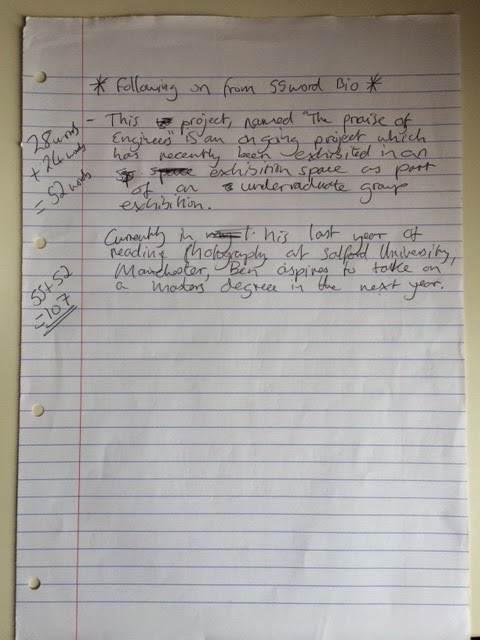 * Following on from 55 word Bio *
- This project, named "The praise of
Engines" is an ongoing project which
has recently been exhibited in an
exhibition space as part
of an undergraduate group
exhibition.
28 words
+ 24 words
= 52 words
Currently in his last year of
reading Photography at Salford University,
Manchester, Ben aspires to take on
a masters degree in the next year.
55+52
=107